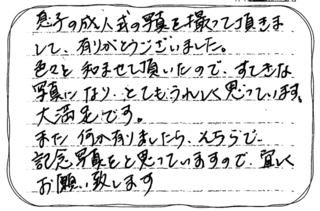 息子の成人式の写真を撮って頂きま
して、有りがとうございました。
色々と和ませて頂いたので、すてきな
写真になり、とてもうれしく思っています。
大満足です。
また何か有りましたら、そちらで
記念写真をと思っていますので、宜しく
お願い致します